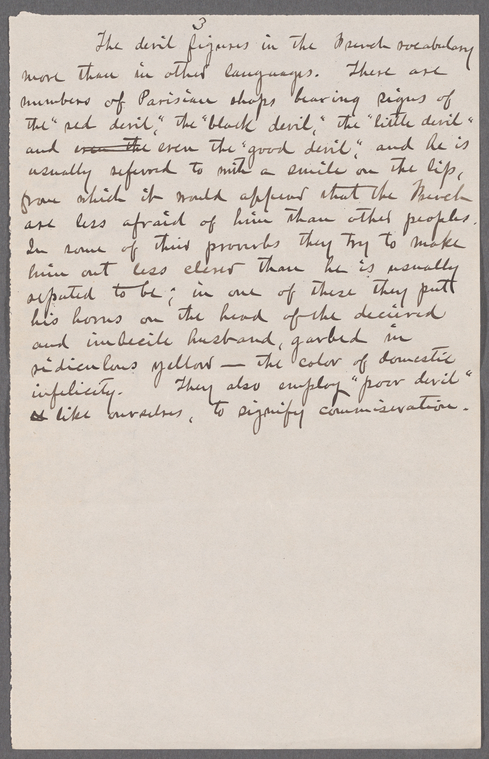 3
The devil figures in the French vocabulary
more than in other languages. There are
numbers of Parisian shops bearing signs of
the "red devil," the "black devil," the "little devil"
and even the even the "good devil," and he is
usually referred to with a smile on the lip,
from which it would appear that the French
are less afraid of him than other peoples.
In some of their proverbs they try to make
him out less clever than he is usually
reputed to be; in one of these they put
his horns on the head of the deceived
and imbecile husband, garbed in
ridiculous yellow — the color of domestic
infelicity. They also employ "poor devil"
like ourselves, to signify commiseration.